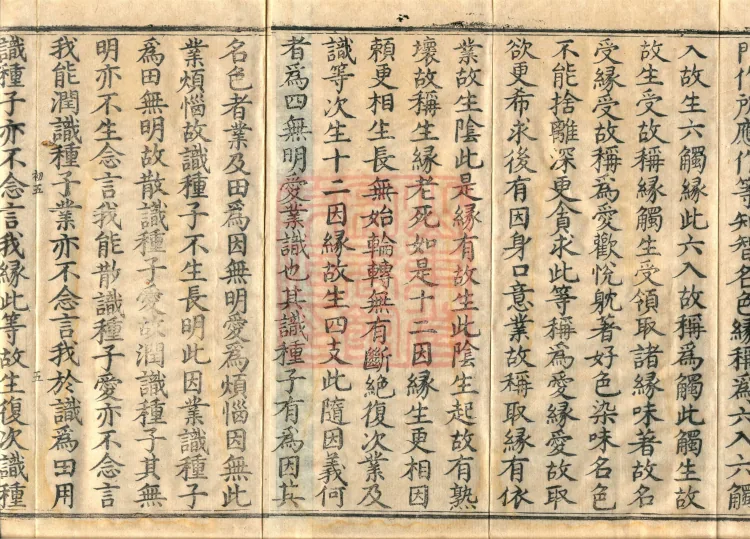 門作所應作等知智名色緣稱爲六入六觸
入故生六觸緣此六入故稱爲觸此觸生故
故生受故稱緣觸生受領取諸緣味著故名
受緣受故稱爲愛歡悅躭著好色染味名色
不能捨離深更貪求此等稱爲愛緣愛故取
欲更希求後有因身口意業故稱取緣有依
業故生陰此是緣有故生此陰生起故有熟
壞故稱生緣老死如是十二因緣生更相因
賴更相生長無始輪轉無有斷絕復次業及
識等次生十二因緣故生四支此隨因義何
者爲四無明愛業識也其識種子有爲因其
名色者業及田爲因無明愛爲煩惱因無此
業煩惱故識種子不生長明此因業識種子
爲田無明故散識種子愛故潤識種子其無
明亦不生念言我能散識種子愛亦不念言
我能潤識種子業亦不念言我於識爲田用
初五
五
識種子亦不念言我緣此等故生復次識種